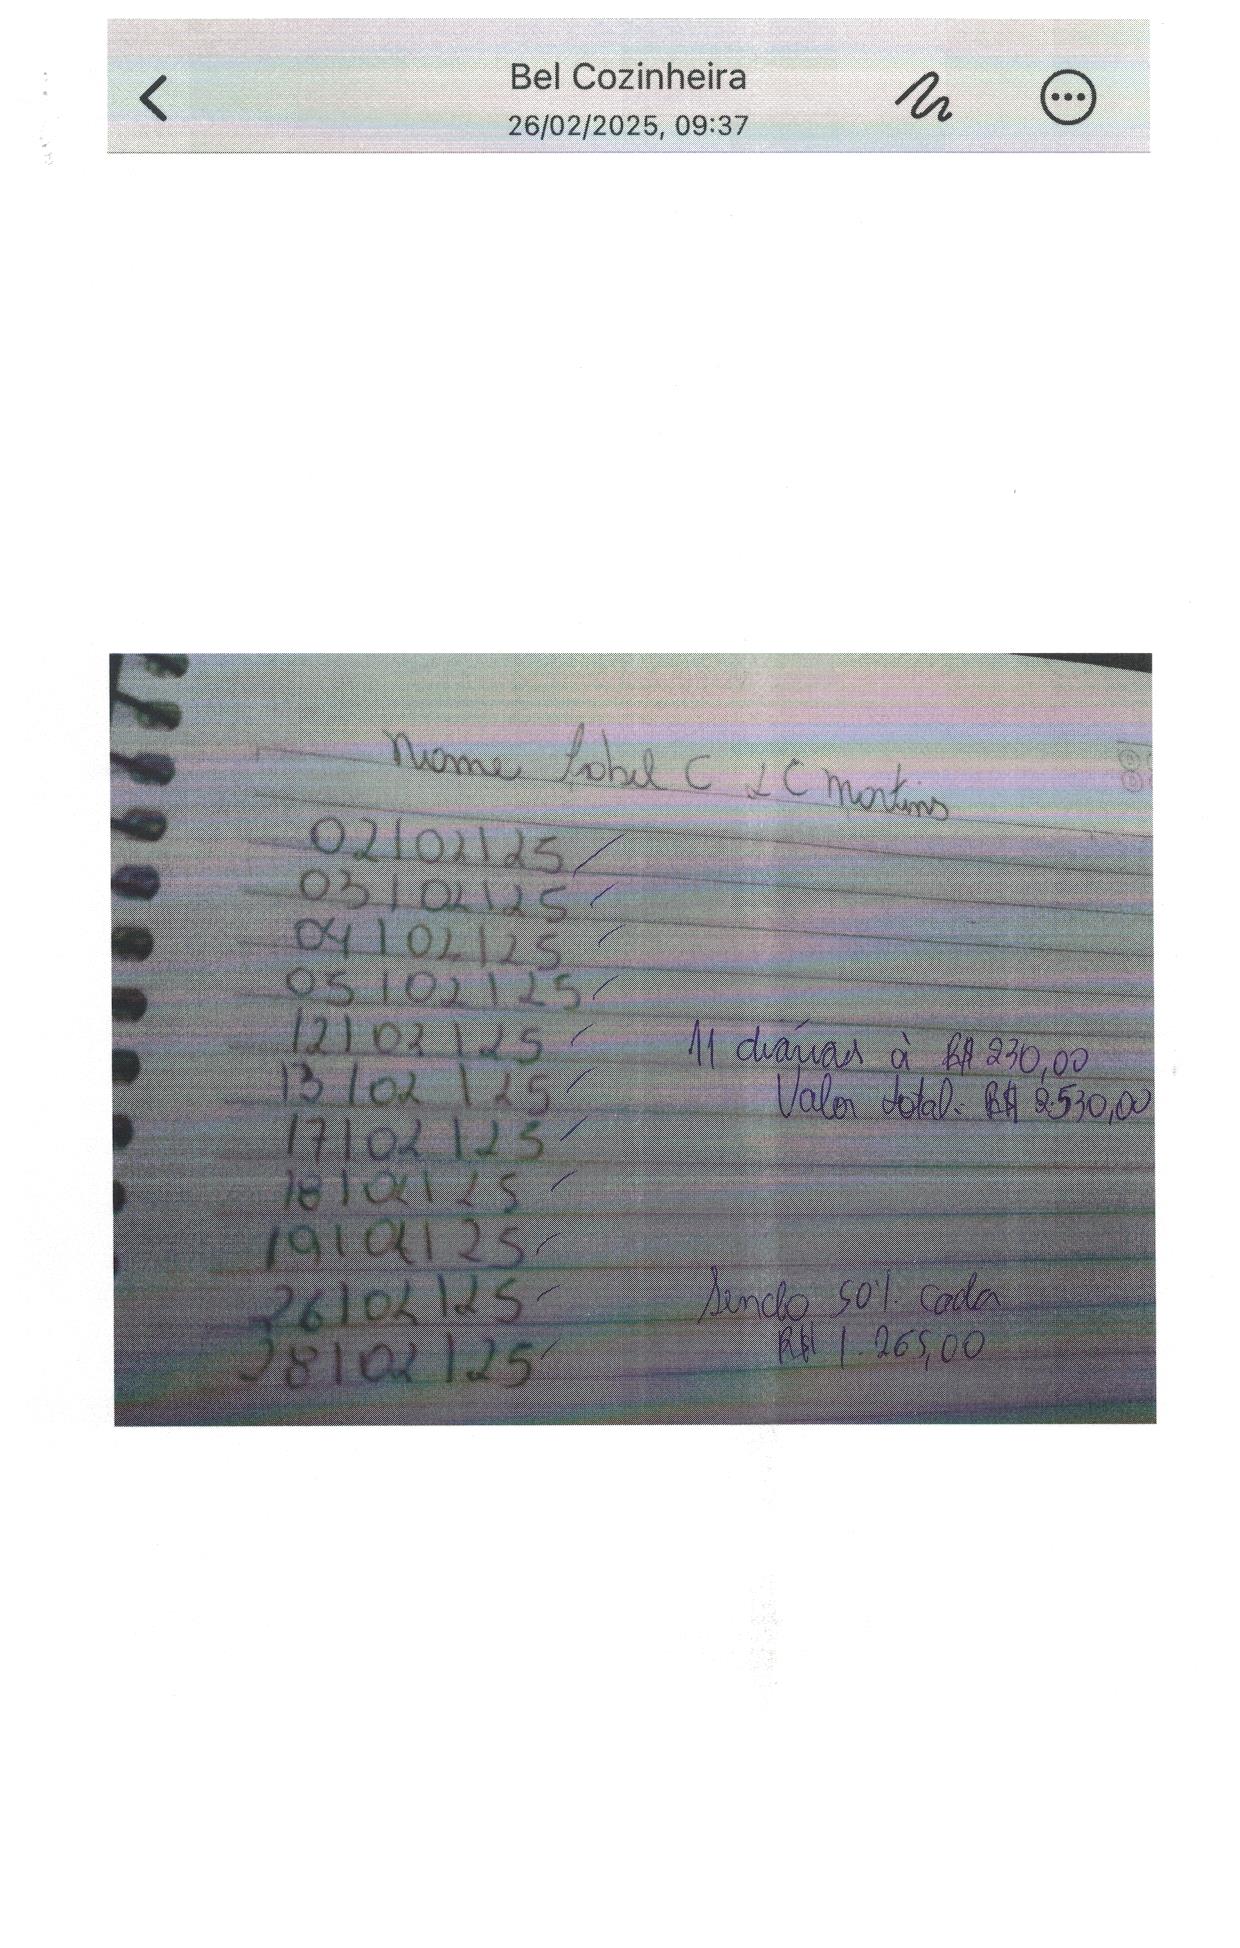 Bel Cozinheira
26/02/2025, 09:37
Nome Isabel C L C Martins
02/02/25
03/02/25
04/02/25
05/02/25
12/02/25
13/02/25
17/02/25
18/02/25
19/02/25
26/02/25
28/02/25
11 diárias à R$ 230,00
Valor total: R$ 2.530,00
Sendo 50% cada
R$ 1.265,00